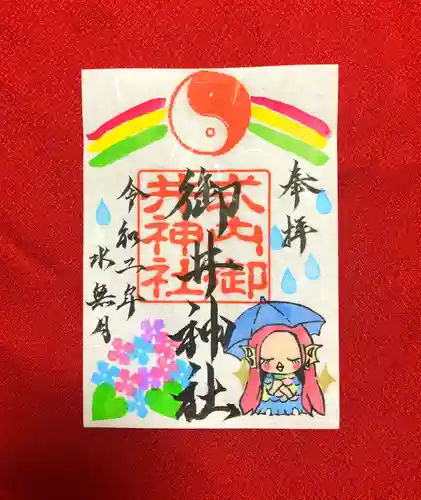 奉拝
御井神社
令和二年
水無月
山御
井神社